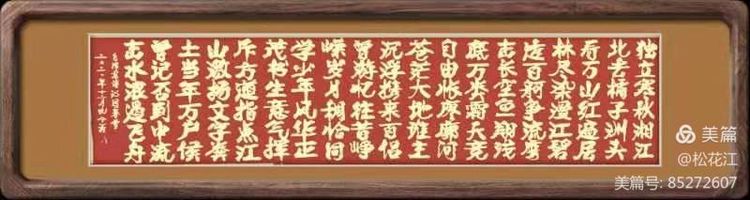 独立寒秋湘江
北去橘子洲头
看万山红遍层
林尽染漫江碧
透百舸争流鹰
击长空鱼翔浅
底万类霜天竞
自由怅寥廓问
苍茫大地谁主
沉浮携来百侣
曾游忆往昔峥
嵘岁月稠恰同
学少年风华正
茂书生意气挥
斥方遒指点江
山激扬文字粪
土当年万户侯
曾记否到中流
击水浪遏飞舟
美篇
@松花江
美篇号: 85272607